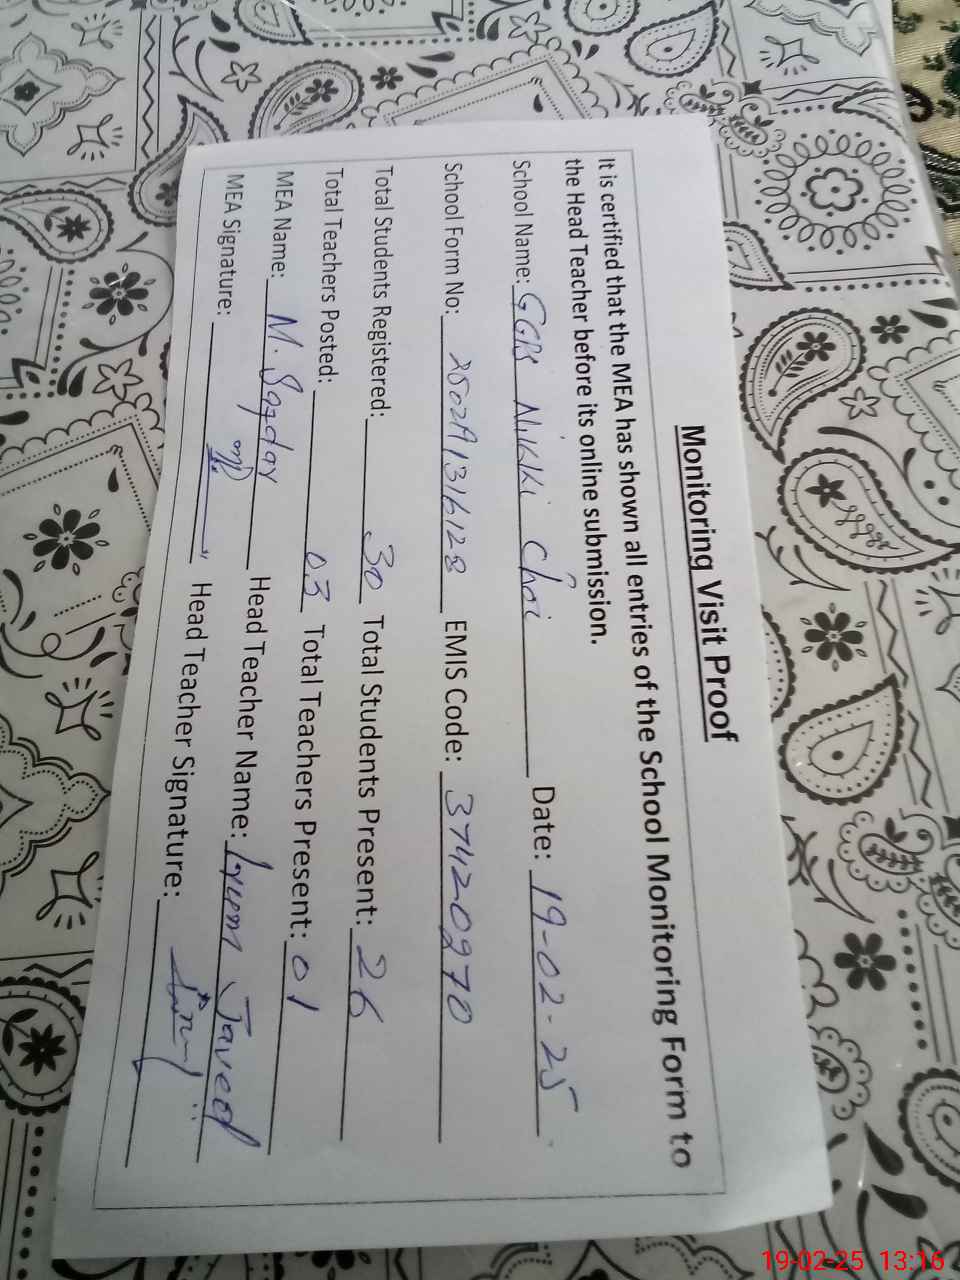 Monitoring Visit Proof
It is certified that the MEA has shown all entries of the School Monitoring Form to
the Head Teacher before its online submission.
School Name: GGPS Nikki Choi Date: 19-02-25
School Form No: 2502A1316128 EMIS Code: 37420970
Total Students Registered: 30 Total Students Present: 26
Total Teachers Posted: 03 Total Teachers Present: 01
MEA Name: M. Head Teacher Name: Javed
MEA Signature: Head Teacher Signature:
19-02-25 13:16